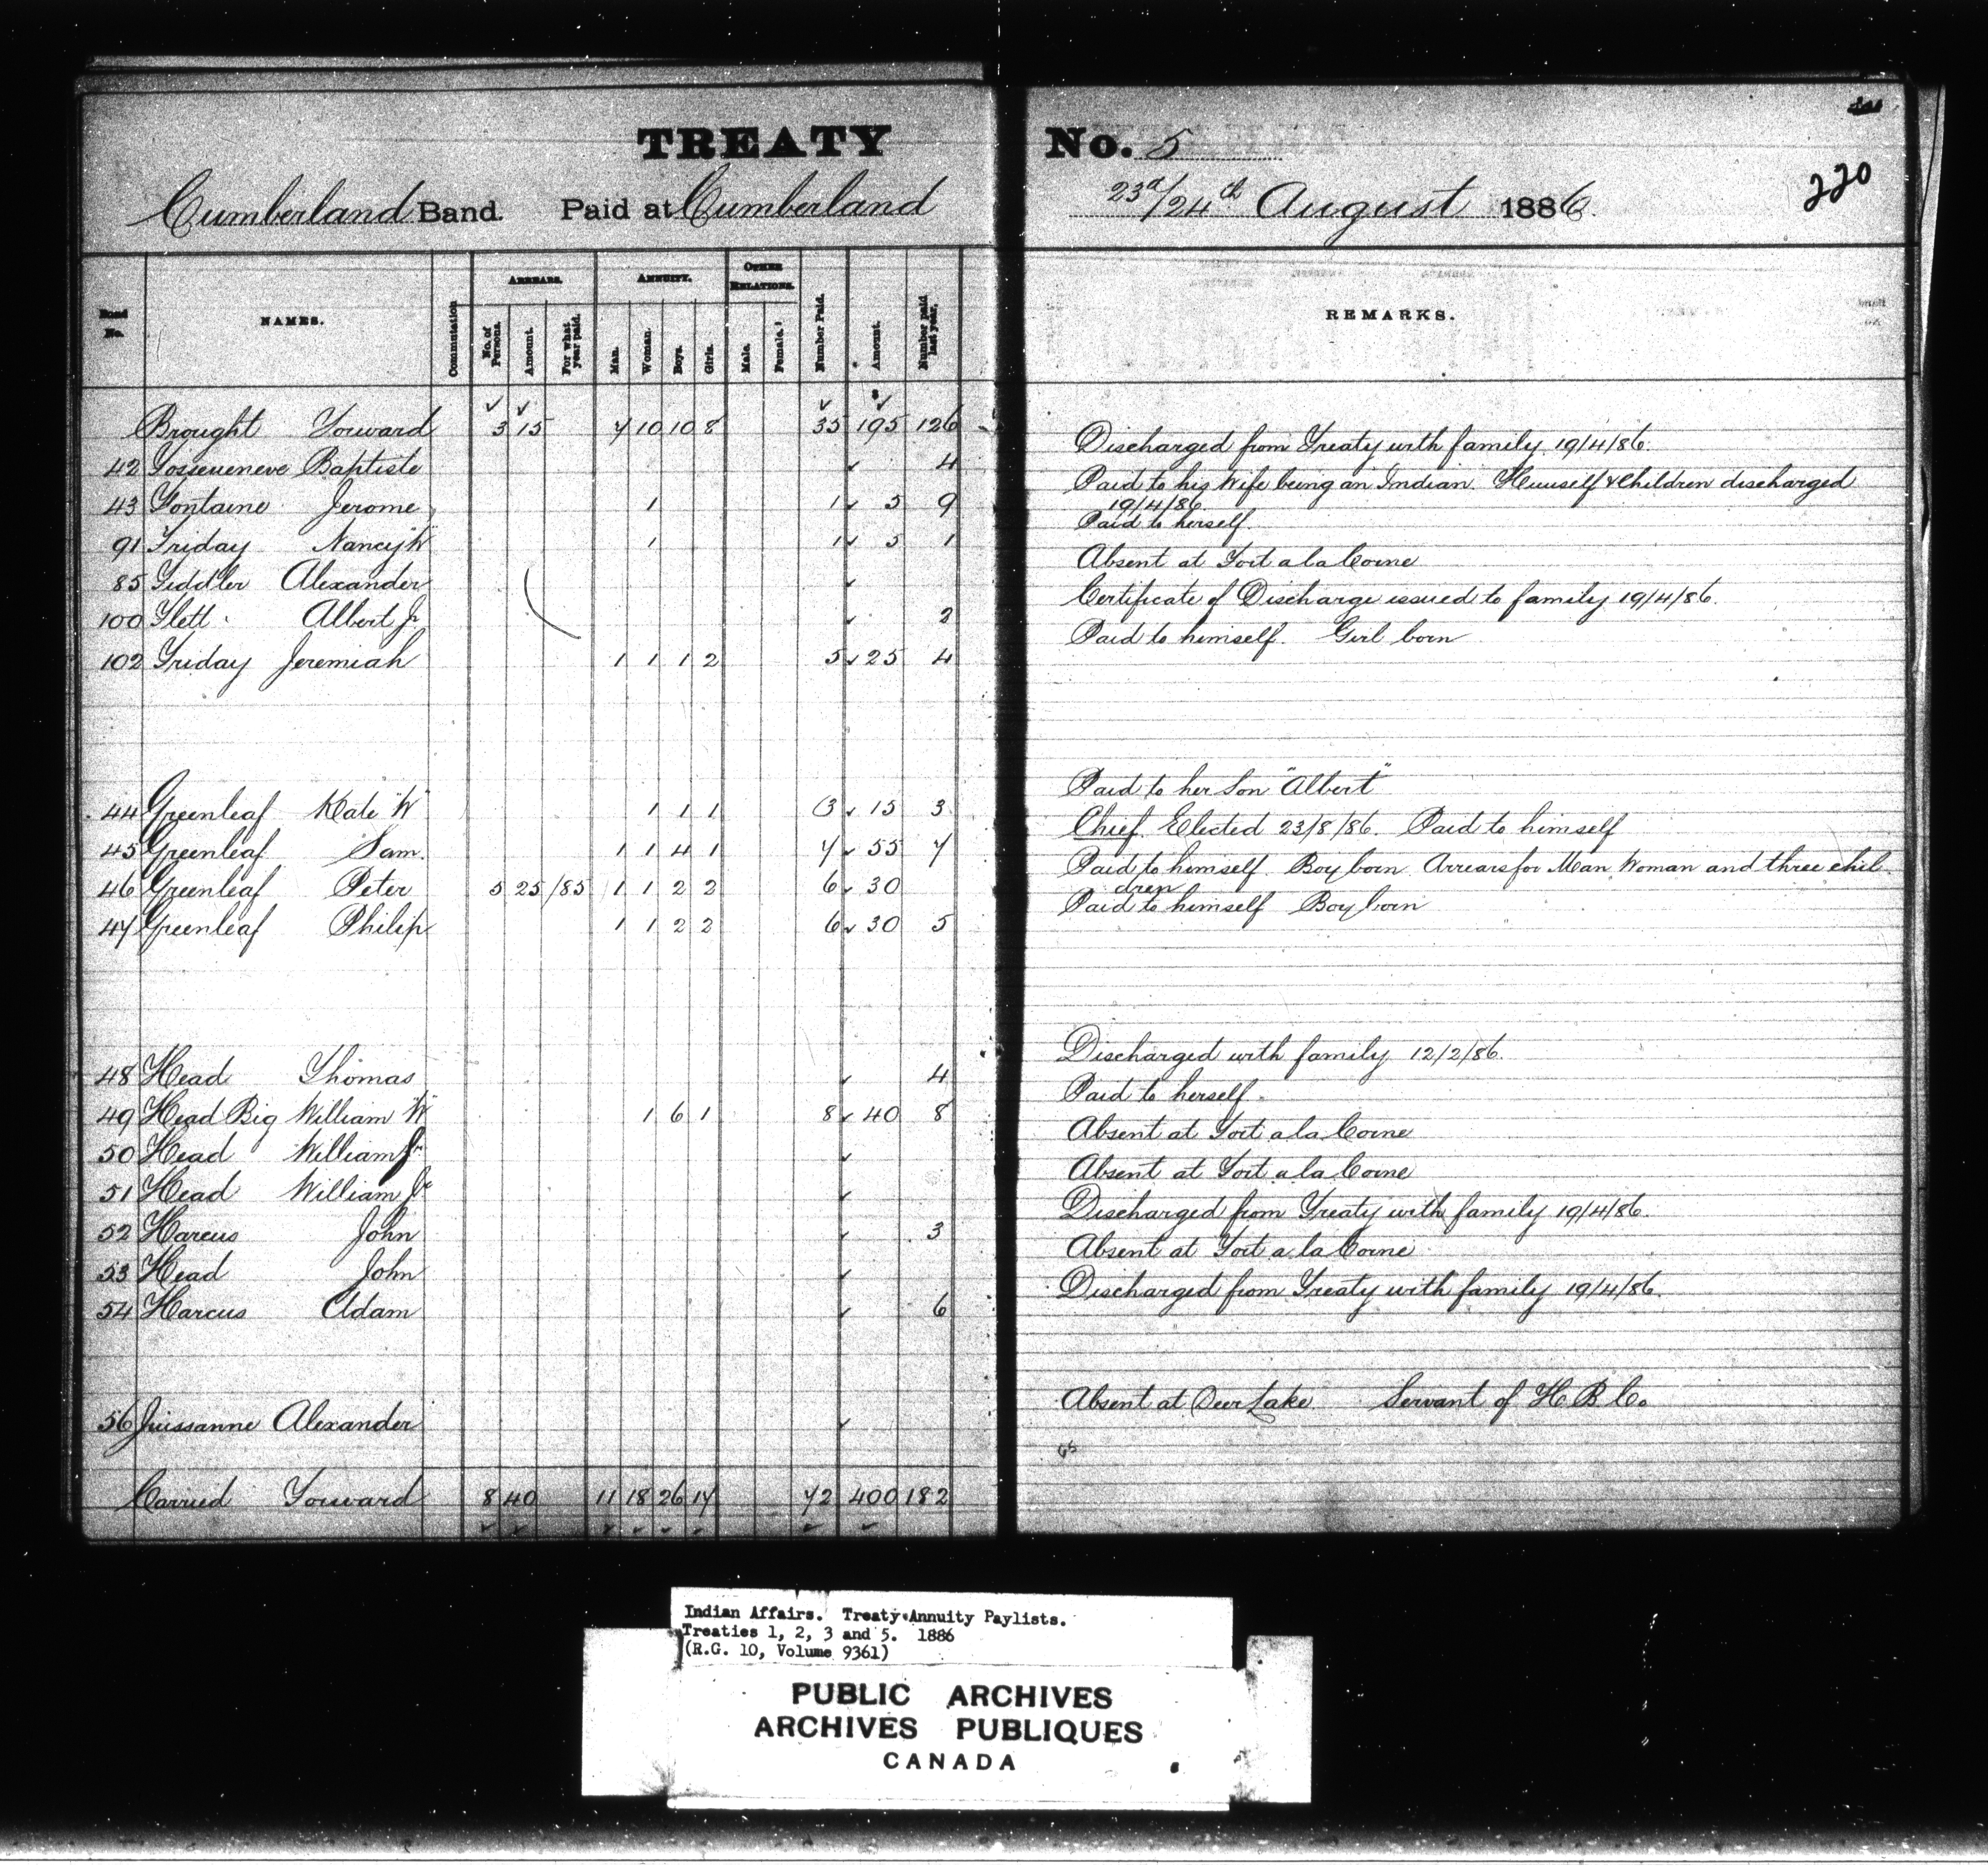 TREATY No. 5
220
Cumberland Band. Paid at Cumberland 23d/24th August 1886.
Band No. NAMES. Commutation ARREARS. No. of Persons. Amount. For what year paid. ANNUITY. Man. Woman. Boys. Girls. OTHER RELATIONS. Male. Female. Number Paid. Amount. Number paid last year. REMARKS.
Brought Forward 3 15 7 10 10 8 35 195 126
42 Baptiste 4 Discharged from Treaty with family 19/4/86.
43 Fontaine Jerome 1 1 5 9 Paid to his Wife being an Indian. Himself & Children discharged
19/4/86
91 Friday Nancy "W" 1 1 5 1 Paid to herself.
85 Fiddler Alexander Absent at Fort a la Corne
100 Flett Albert Jr 2 Certificate of Discharge issued to family 19/4/86.
102 Friday Jeremiah 1 1 1 2 5 25 4 Paid to himself. Girl born
44 Greenleaf Kate "W" 1 1 1 3 15 3 Paid to her Son "Albert"
45 Greenleaf Sam. 1 1 4 1 7 55 7 Chief. Elected 23/8/86. Paid to himself
46 Greenleaf Peter 5 25 /85 1 1 2 2 6 30 Paid to himself. Boy born Arrears for Man Woman and three chil
dren
47 Greenleaf Philip 1 1 2 2 6 30 5 Paid to himself Boy born
48 Head Thomas 4 Discharged with family 12/2/86.
49 Head Big William "W" 1 6 1 8 40 8 Paid to herself.
50 Head William Absent at Fort a la Corne
51 Head William Jr Absent at Fort a la Corne
52 Harcus John 3 Discharged from Treaty with family 19/4/86.
53 Head John Absent at Fort a la Corne
54 Harcus Adam 6 Discharged from Treaty with family 19/4/86.
56 Alexander Absent at Deer Lake Servant of H B Co
Carried Forward 8 40 11 18 26 17 72 400 182
Indian Affairs. Treaty Annuity Paylists.
Treaties 1, 2, 3 and 5. 1886
(R.G. 10, Volume 9361)
PUBLIC ARCHIVES
ARCHIVES PUBLIQUES
CANADA